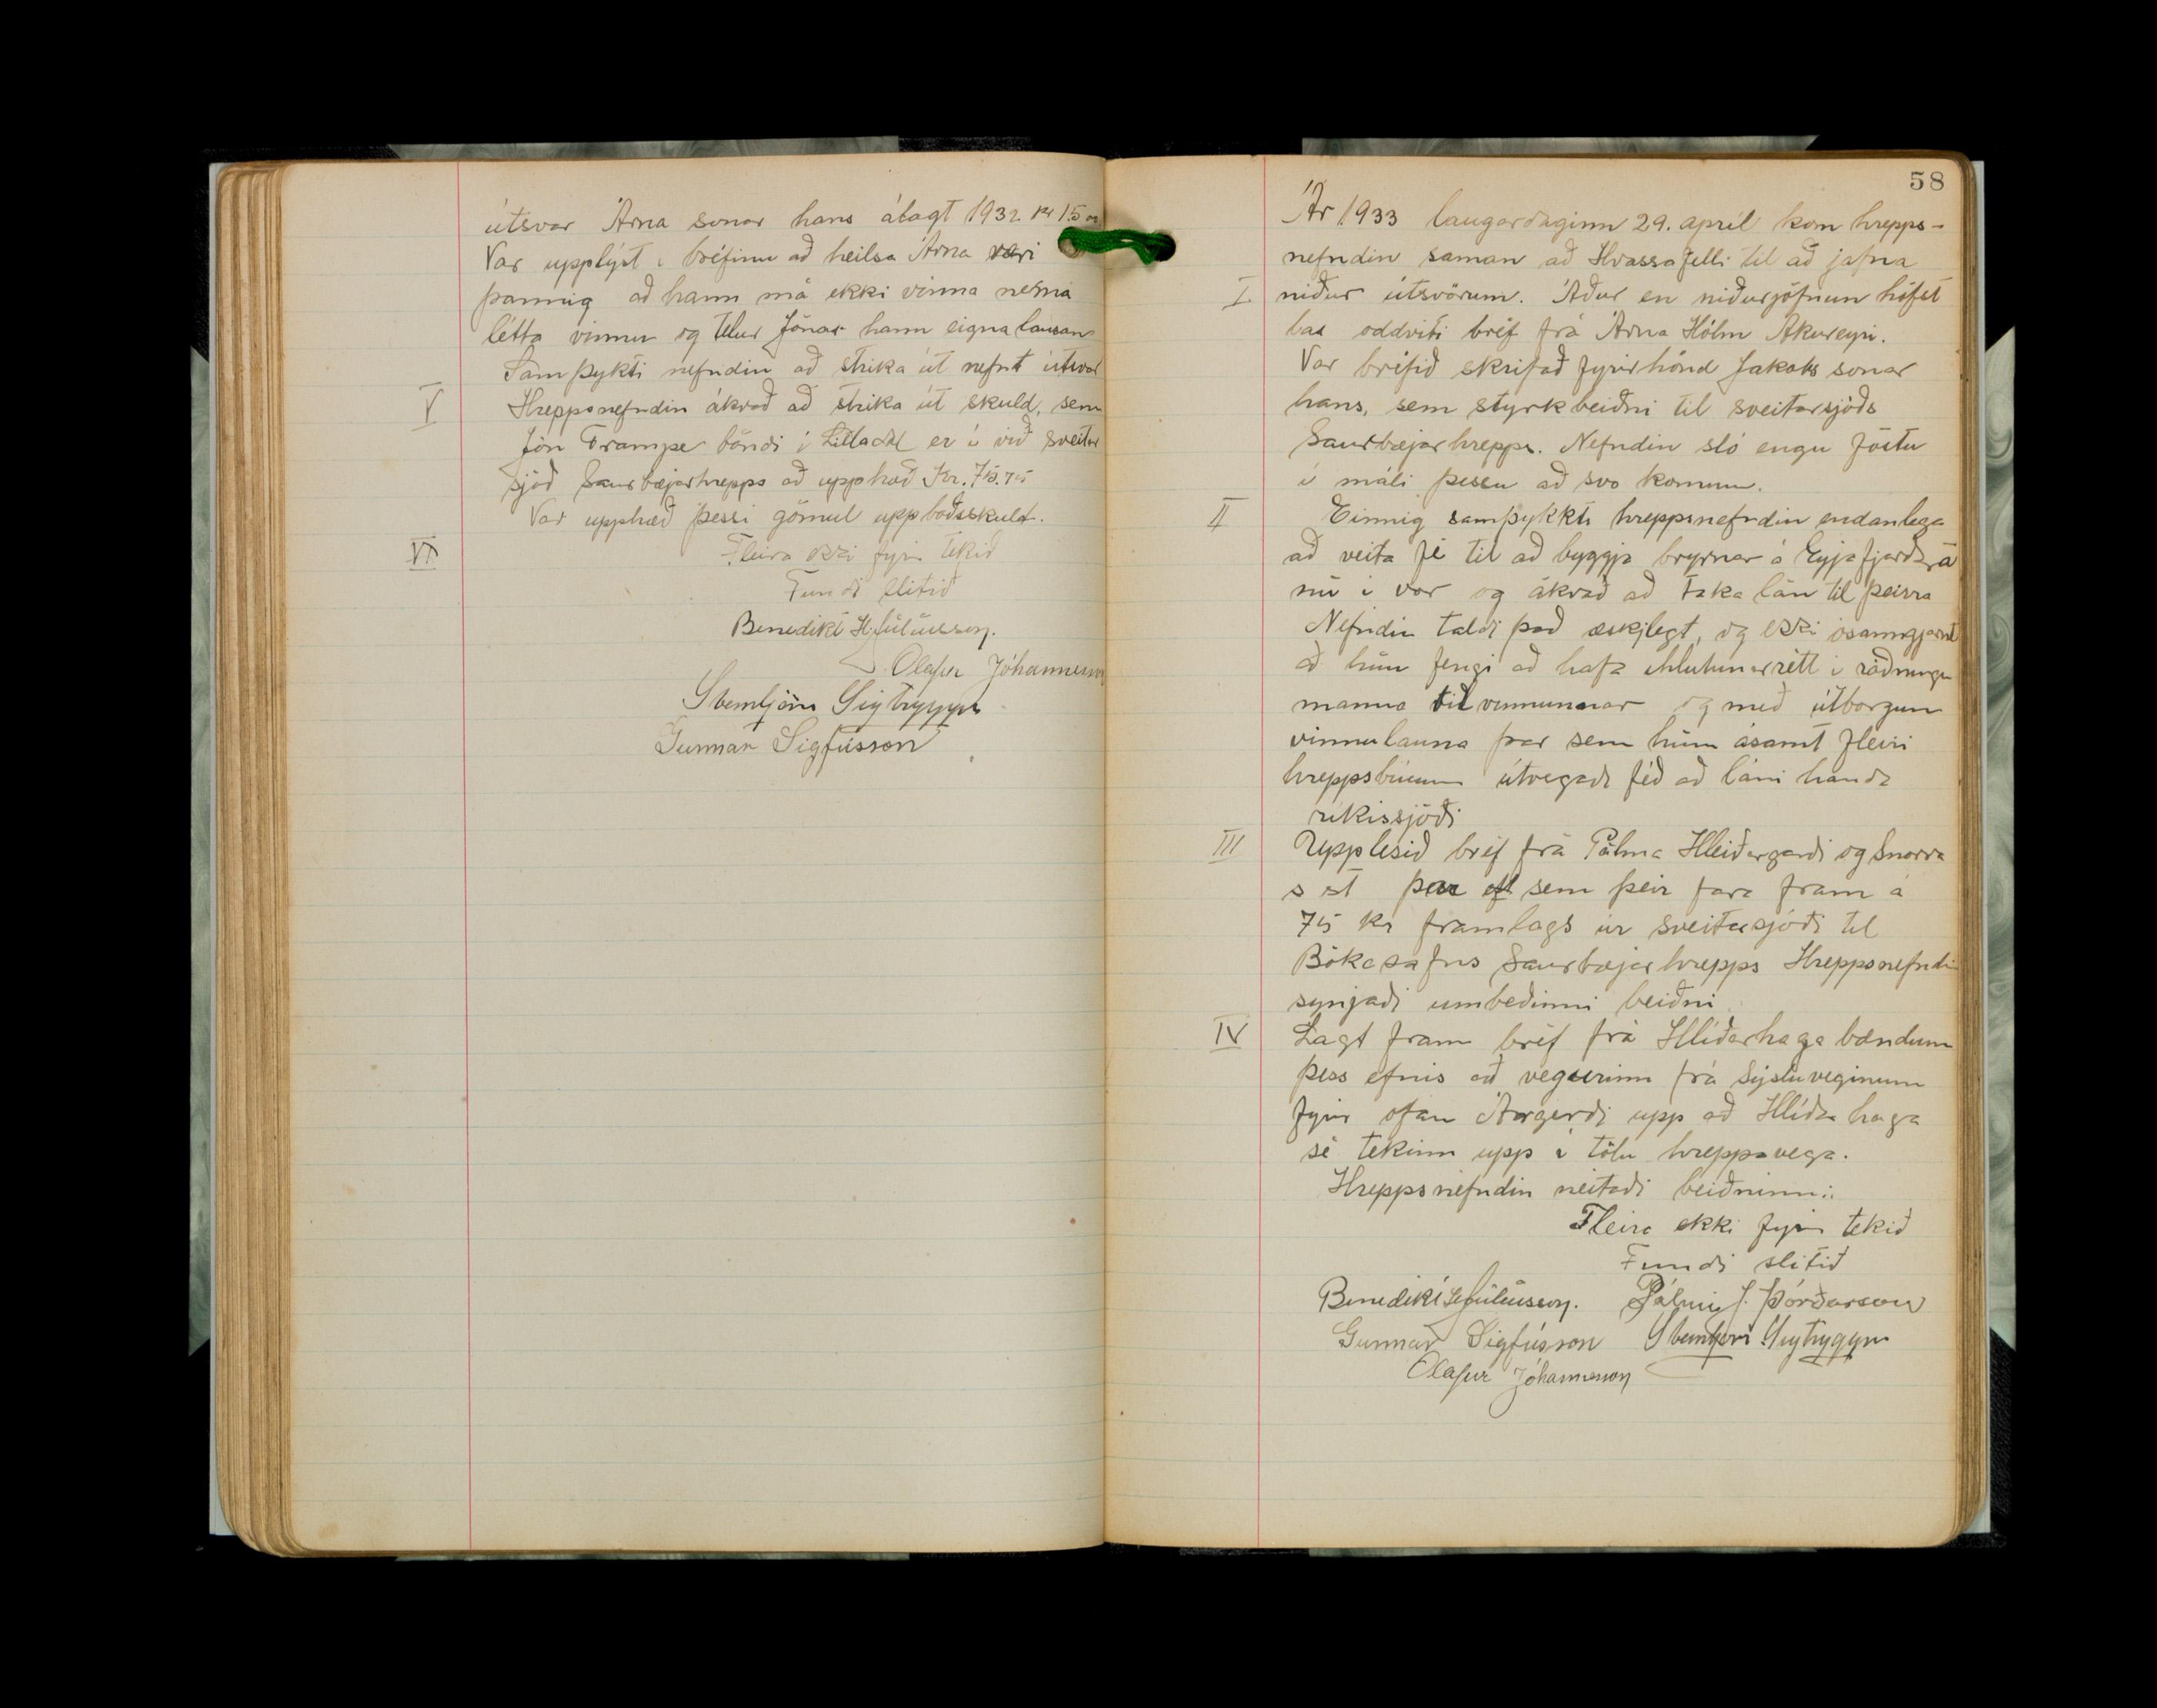 útsvar Árna sonar hans álagt 1932 kr 15 oo
Var upplýst í bréfinu að heilsa Árna væri
þannig að hann má ekki vinna nema
létta vinnu og telur Jónas hann eignalausan
Samþykti nefndin að strika út nefnt útsvar
V Hreppsnefndin ákvað að strika út skuld, sem
Jón Trampe bóndi í Litladal er í við sveitar
sjóð Saurbæjarhrepps að upphæð Kr. 75.75
Var upphæð þessi gömul uppboðsskuld.
VI Fleira ekki fyrir tekið
Fundi slitið
Benedikt H. Júlíusson.
Ólafur Jóhannesson
Sigtryggs
Gunnar Sigfússon
58
Ár 1933 laugardaginn 29. apríl kom hrepps-
nefndin saman að Hvassafelli til að jafna
I niður útsvörum. Áður en niðurjöfnun hófst
las oddviti bréf frá Árna Hólm Akureyri.
Var bréfið skrifað fyrir hönd Jakobs sonar
hans, sem styrkbeiðni til sveitarsjóðs
Saurbæjarhrepps. Nefndin sló engu föstu
í máli þessu að svo komnu.
II Einnig samþykkti hreppsnefndin endanlega
að veita fé til að byggja brýrnar á Eyjafjarðará
nú í vor og ákvað að taka lán til þeirra
Nefndin taldi það æskjlegt, og ekki ósanngjarnt
að hún fengi að hafa íhlutunarrétt í ráðningu
manna til vinnunnar og með útborgun
vinnulauna þar sem hún ásamt fleiri
hreppsbúum útvegaði féð að láni handa
ríkissjóði
III Upplesið bréf frá Pálma Hleiðargarði og Snorra
s st þar sem þeir fara fram á
75 kr framlags úr sveitasjóði til
Bókasafns Saurbæjarhrepps Hreppsnefndin
synjaði umbeðinni beiðni
IV Lagt fram bréf frá Hlíðarhaga bændum
þess efnis að vegurinn frá sýsluveginum
fyrir ofan Árgerði upp að Hlíðarhaga
sé tekinn upp í tölu hreppavega.
Hreppsnefndin neitaði beiðninni.
Fleira ekki fyrir tekið
Fundi slitið
Benedikt H Júlíusson. Pálmi J. Þórðarson
Gunnar Sigfússon Sigtryggs
Ólafur Jóhannesson